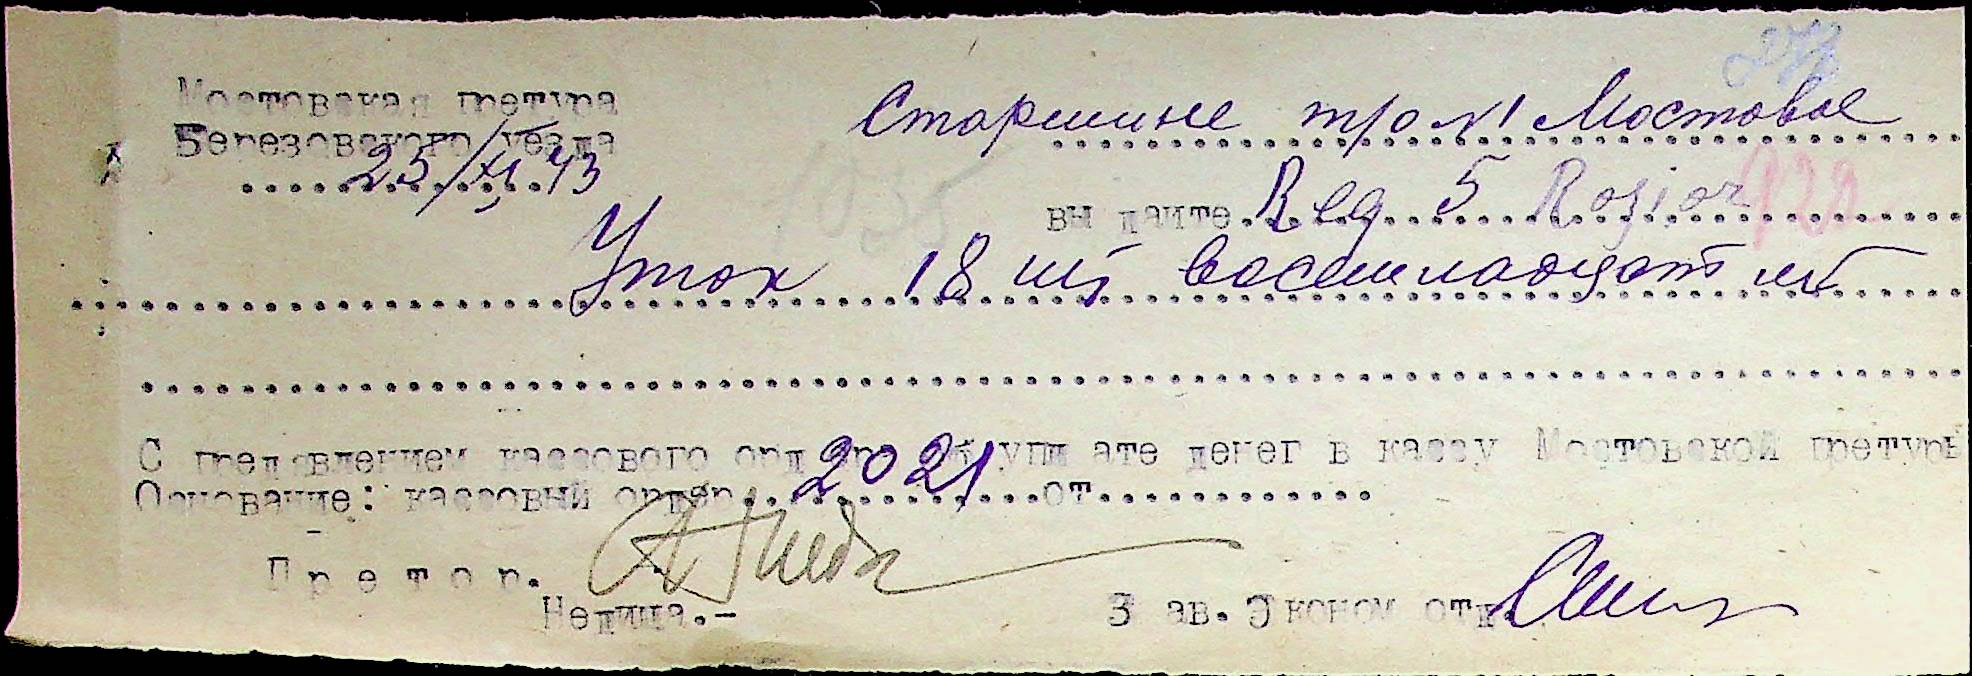 Мостовская претура
Березовского уезда
25/XI 43
Старшине тр о N1 Мостовое
1035
выдайте Reg 5 Roșior
Уток 18 шт восемнадцат шт
С пред'явлением кассового ордера об уплате денег в кассу Мостовской претуры
Основание: кассовый ордер 2021 от
Претор.
Недица.-
Зав. Эконом отд.